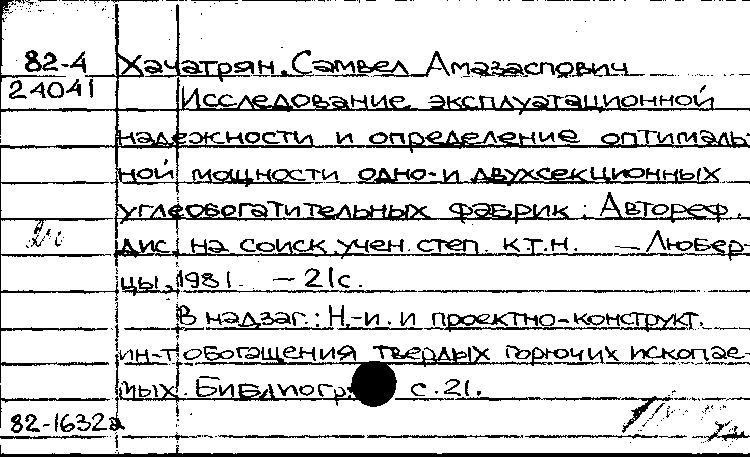 82-4 Хачатрян, Самвел Амазаспович
24041 Исследование эксплуатационной
надежности и определение оптималь-
ной мощности одно- и двухсекционных
углеобогатительных фабрик: Автореф.
дис. на соиск. учен. степ. к.т.н. – Любер-
цы, 1981. – 21с.
В надзаг.: Н.-и. и проектно-конструкт.
ин-т обогащения твердых горючих ископае-
мых. Библиогр.: с. 21.
82-1632а